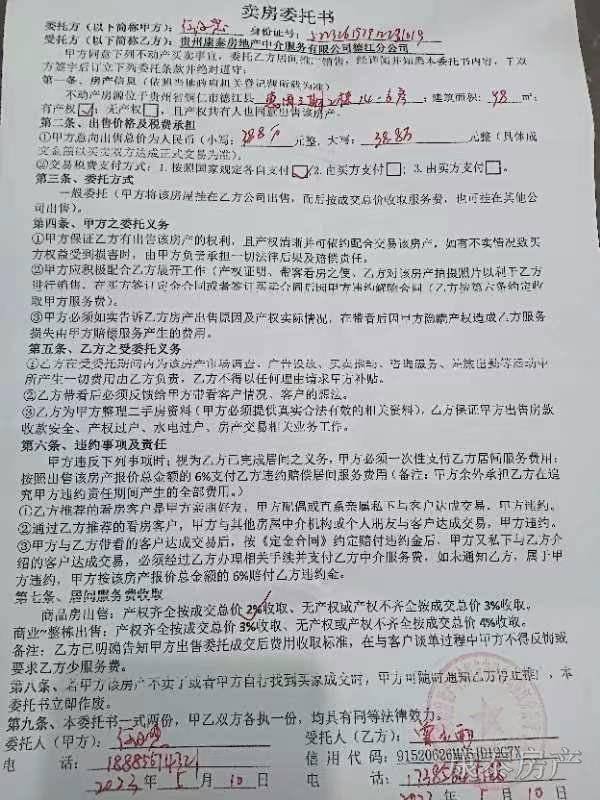 卖房委托书
委托方（以下简称甲方）： 身份证号：
受托方（以下简称乙方）：贵州康泰房地产中介服务有限公司德江分公司
甲方同意下列不动产买卖事宜，委托乙方居间推广销售，经详阅并知悉本委托书内容，甲双
方签字后订立下列委托条款并绝对遵守：
第一条、房产信息（依照当地政府相关登记册所载为准）
不动产房源位于贵州省铜仁市德江县 ；建筑面积：98 ㎡；
有产权☑；无产权□，且产权共有人也同意出售该房产。
第二条、出售价格及税费承担
①甲方意向出售总价为人民币（小写：38.8万 元整，大写：38.8万 元整（具体成
交金额以买卖双方达成正式交易为准）。
②交易税费支付方式：1.按照国家规定各自支付☑/2.由买方支付□；3.由卖方支付□。
第三条、委托方式
一般委托（甲方将该房屋挂在乙方公司出售，而后按成交总价收取服务费，也可挂在其他公
司出售）。
第四条、甲方之委托义务
①甲方保证乙方有出售该房产的权利，且产权清晰并可依约配合交易该房产，如有不实情况致买
方权益受到损害时，由甲方负责承担一切法律后果及赔偿责任。
②甲方应积极配合乙方展开工作（产权证明、带客看房之便、乙方对该房产拍摄照片以利于乙方
进行销售。在买方签订定金合同或者签订买卖合同后因甲方违约解除合同（乙方按第六条约定收
取甲方服务费）。
③甲方必须如实告诉乙方房产出售原因及产权实际情况，在带看后因甲方隐瞒产权造成乙方服务
损失由甲方赔偿服务产生的费用。
第五条、乙方之受委托义务
①乙方在受委托期间内为该房产市场调查、广告投放、买卖推动、咨询服务、差旅出勤等活动中
所产生一切费用由乙方负责，乙方不得以任何理由请求甲方补贴。
②乙方带看后必须反馈给甲方带看客户情况、客户的想法。
③乙方为甲方整理二手房资料（甲方必须提供真实合法有效的相关资料），乙方保证甲方出售房款
收款安全、产权过户、水电过户、房产交易相关业务工作。
第六条、违约事项及责任
甲方违反下列事项时；视为乙方已完成居间之义务，甲方必须一次性支付乙方居间服务费用；
按照出售该房产报价总金额的 6%支付乙方违约赔偿居间服务费用（备注：甲方余外承担乙方在追
究甲方违约责任期间产生的全部费用。）
①乙方推荐的看房客户是甲方亲戚好友，甲方配偶或直系亲属私下与客户达成交易，甲方违约。
②通过乙方推荐的看房客户，甲方与其他房屋中介机构或个人朋友与客户达成交易，甲方违约。
③甲方与乙方带看的客户达成交易后，按《定金合同》约定赔付违约金后，甲方又私下与乙方介
绍的客户达成交易，必须经过乙方办理相关手续并支付乙方中介服务费，如未通知乙方，属于甲
方违约，甲方按该房产报价总金额的 6%赔付乙方违约金。
第七条、居间服务费收取
商品房出售：产权齐全按成交总价 2%收取、无产权或产权不齐全按成交总价 3%收取。
商业~整栋出售：产权齐全按成交总价 3%收取、无产权或产权不齐全按成交总价 4%收取。
备注：乙方已明确告知甲方出售委托成交后费用收取标准，在与客户谈单过程中甲方不得反悔或
要求乙方少服务费。
第八条、若甲方该房产不卖了或者甲方自行找到买家成交时，甲方可随时通知乙方停止推广，本
委托书立即作废。
第九条、本委托书一式两份，甲乙双方各执一份，均具有同等法律效力。
委托人（甲方）： 受托人（乙方）：
电 话：18885614321 信用代码：
2023 年 5 月 10 日 电 话：
2023 年 5 月 10 日
康泰房产